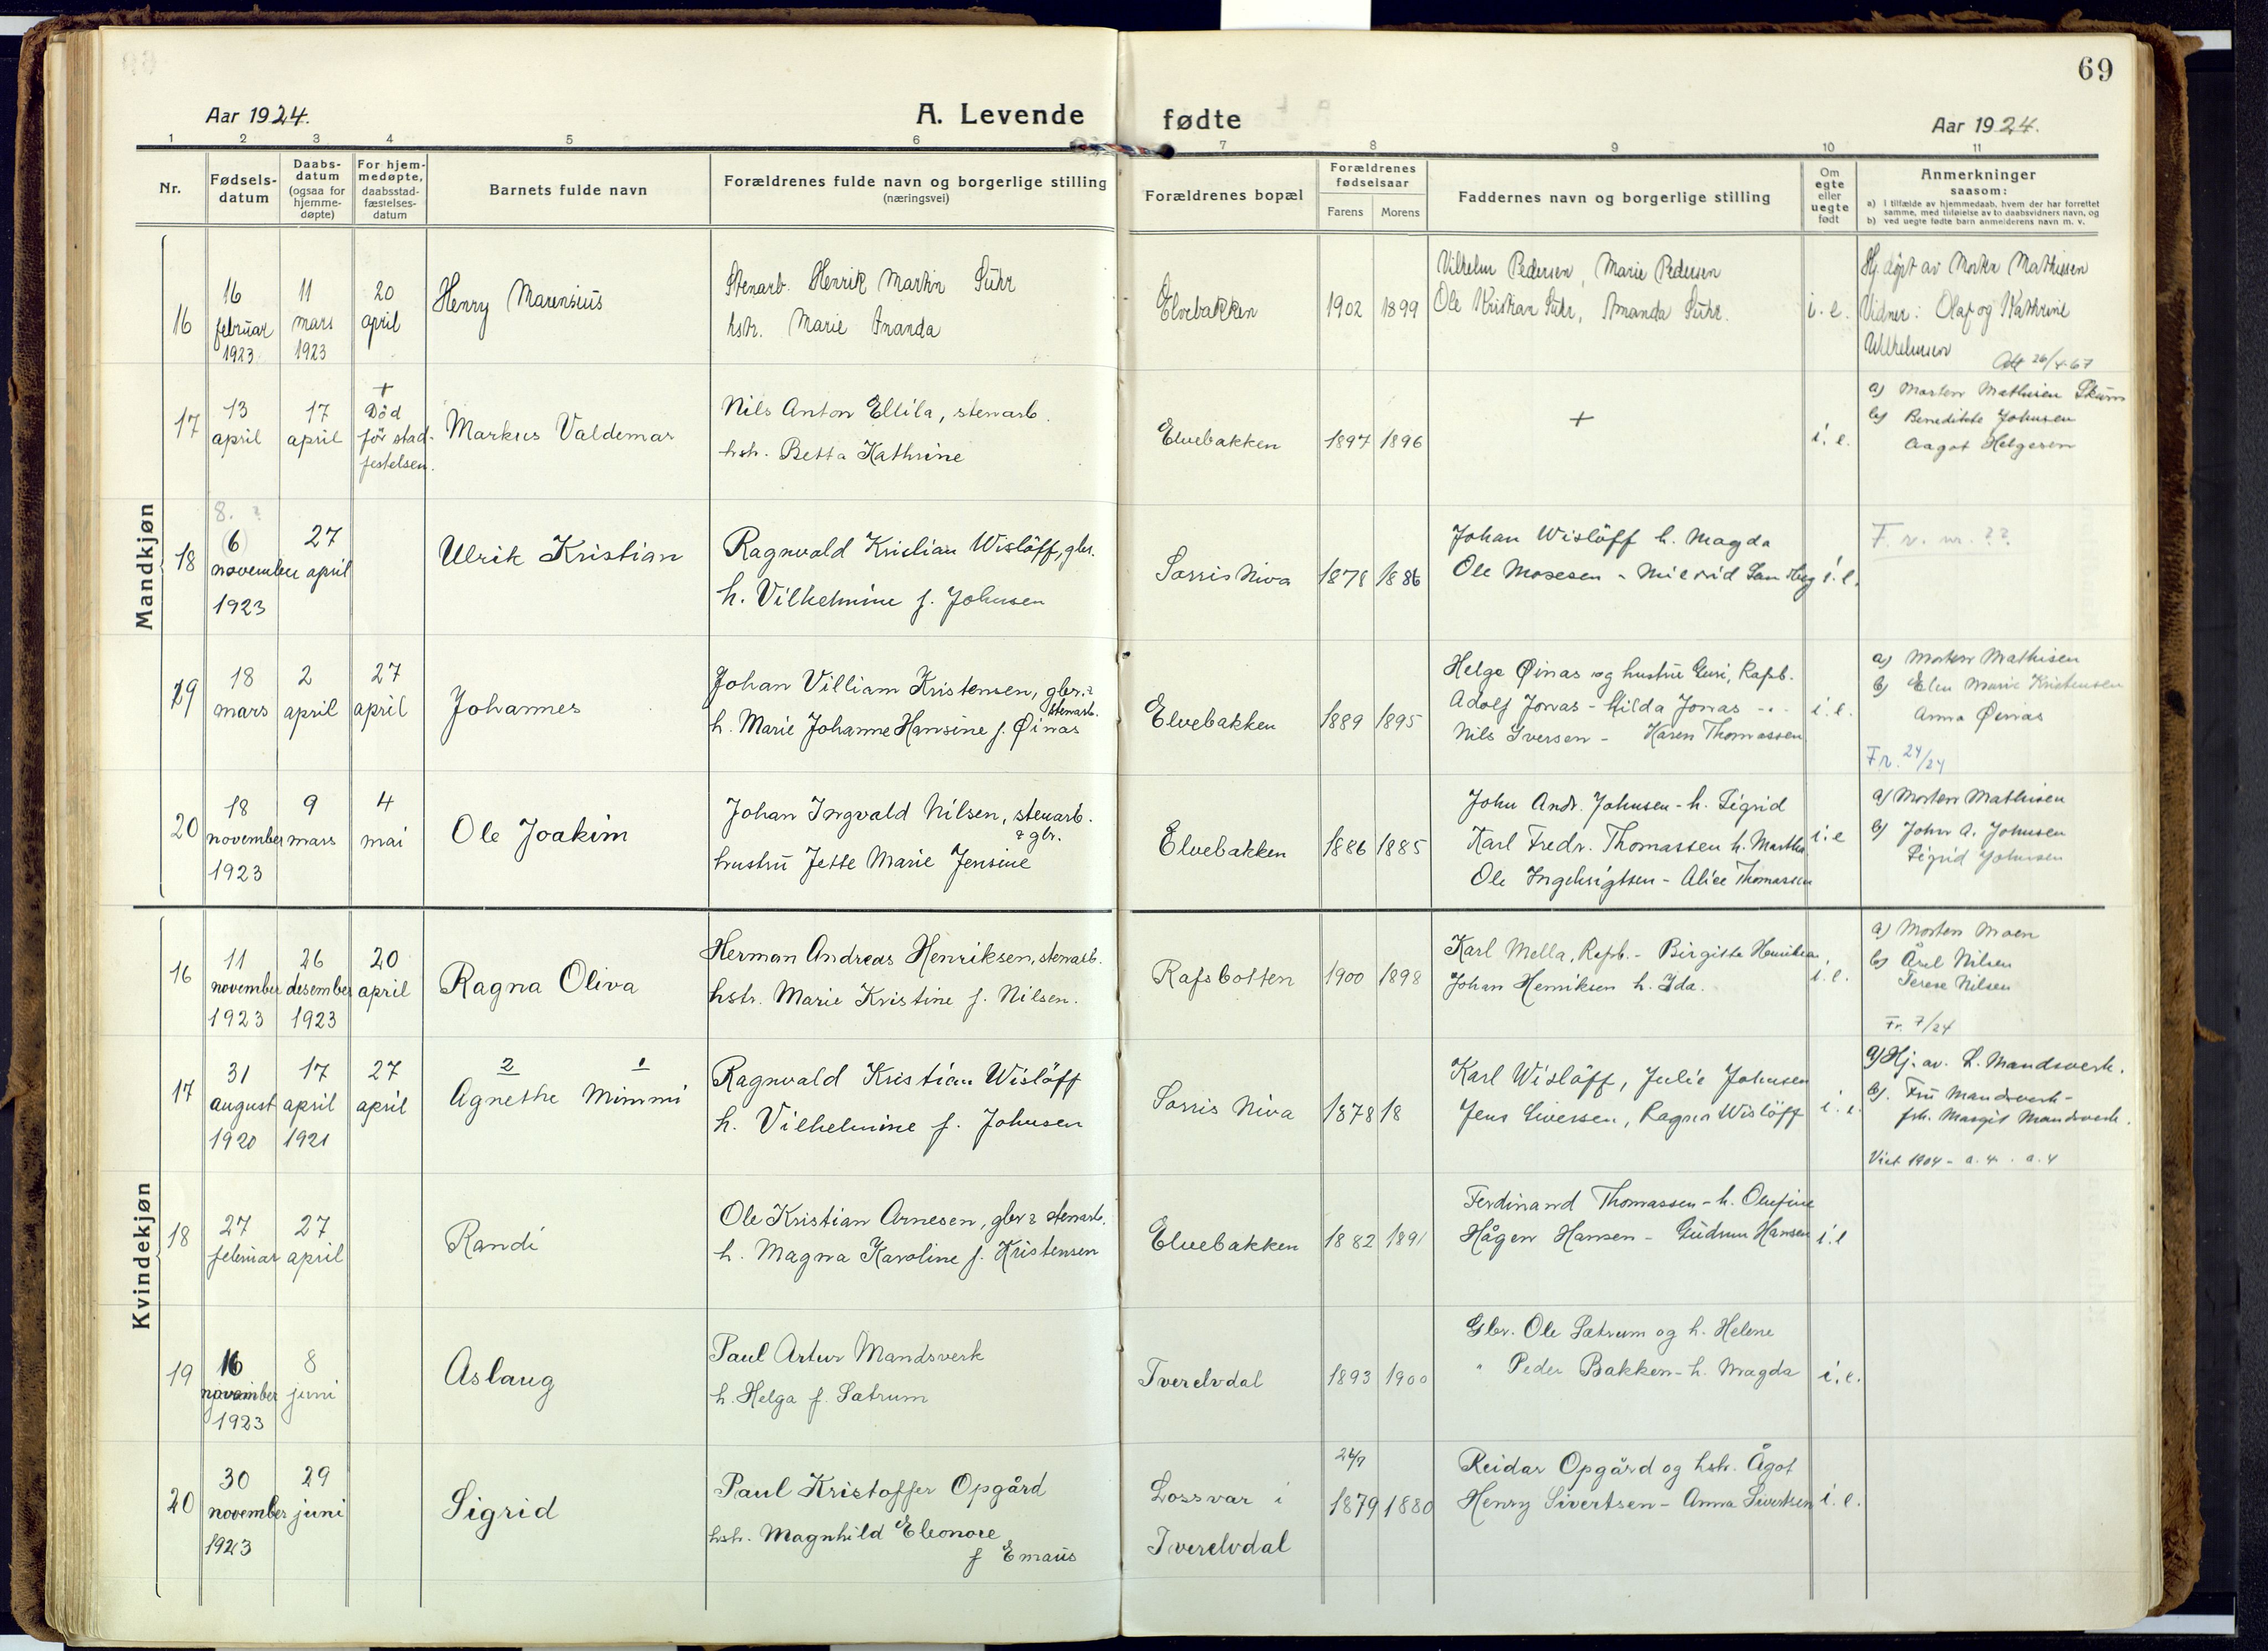 69
Aar 1924.
A. Levende fødte
Aar 1924.
1 2 3 4 5 6 7 8 9 10 11
Nr.
Fødsels-
datum
Daabs-
datum
(ogsaa for
hjemme-
døpte)
For hjem-
medøpte,
daabsstad-
fæstelses-
datum
Barnets fulde navn
Forældrenes fulde navn og borgerlige stilling
(næringsvei)
Forældrenes bopæl
Forældrenes
fødselsaar
Farens Morens
Faddernes navn og borgerlige stilling
Om
egte
eller
uegte
født
Anmerkninger
saasom:
a) i tilfælde av hjemmedaab, hvem der har forrettet
samme, med tilføielse av to daabsvidners navn, og
b) ved uegte fødte barn anmelderens navn m. v.
Mandkjøn
16
16
februar
1923
11
mars
1923
20
april
Henry Marensius
Stenarb. Henrik Martin Suhr
hstr. Marie Amanda
Elvebakken
1902 1899
Vilhelm Pedersen, Marie Pedersen
Ole Kristian Suhr, Amanda Suhr.
i. e.
Hj. døpt av Morten Mathiesen
Vidner: Olaf og Kathrine
Wilhelmsen
Att 26/4-67
17
13
april
17
april
+
Död
för stad-
festelsen.
Markus Valdemar
Nils Anton Ellila, stenarb.
hstr. Betta Kathrine
Elvebakken
1897 1896
+
i. e.
a) Morten Mathisen
b) Benedikte Johnsen
Aagot Helgesen
18
8. ?
(6)
november
1923
27
april
Ulrik Kristian
Ragnvald Kristian Wislöff, gbr.
h. Vilhelmine f. Johnsen
Sorrisniva
1878 1886
Johan Wislöff h. Magda
Ole Mosesen -
i. e.
F. r. nr. ??
19
18
mars
2
april
27
april
Johannes
Johan Villiam Kristensen, gbr. &
stenarb.
h. Marie Johanne Hansine f. Øinas
Elvebakken
1889 1895
Helge Øinas og hustru Guri, Rafsb.
Adolf Jonas - Hilda Jonas - . -
Nils Iversen - Karen Thomassen
i. e.
a) Morten Mathisen
b) Elen Marie Kristensen
Anna Øinas
Fr. 24/24
20
18
november
1923
9
mars
4
mai
Ole Joakim
Johan Ingvald Nilsen, stenarb.
& gbr.
hustru Jette Marie Jensine
Elvebakken
1886 1885
John Andr. Johnsen - h. Sigrid
Karl Fredr. Thomassen h. Martha
Ole Ingebrigtsen - Alice Thomassen
i. e
a) Morten Mathisen
b) John A. Johnsen
Sigrid Johnsen
Kvindekjøn
16
11
november
1923
26
desember
1923
20
april
Ragna Oliva
Herman Andreas Henriksen, stenarb.
hstr. Marie Kristine f. Nilsen.
Rafsbotten
1900 1898
Karl Mella, Rafsb. - Birgitte Henriksen,
Johan Henriksen h. Ida.
i. e.
a) Morten Moen
b) Årel Nilsen
Terese Nilsen
Fr. 7/24
17
31
august
1920
17
april
1921
27
april
2 1
Agnethe Mimmi
Ragnvald Kristian Wislöff
h. Vilhelmine f. Johnsen
Sorris niva
1878 18
Karl Wislöff, Julie Johnsen
Jens Siversen, Ragna Wislöff
i. e.
a) Hj. av. L. Mandsverk.
b). Fru Mandsverk -
frk. Margit Mandsverk.
a. 4. a. 4
18
27
februar
27
april
Randi
Ole Kristian Arnesen, gbr & stenarb.
h. Magna Karoline f. Kristensen
Elvebakken
1882 1891
Ferdinand Thomassen - h. Olufine
Hågen Hansen - Gudrun Hansen
i. e
19
16
november
1923
8
juni
Aslaug
Paul Artur Mandsverk
h. Helga f. Sætrum
Tverelvdal
1893 1900
Gbr. Ole Sætrum og h. Helene
" Peder Bakken - h. Magda
i. e.
20
30
november
1923
29
juni
Sigrid
Paul Kristoffer Opgård
hstr. Magnhild Eleonore
f Emaus
Lossvar i
Tverelvdal
24/7
1879 1880
Reidar Opgård og hstr. Ågot
Henry Sivertsen - Anna Sivertsen
i. e.